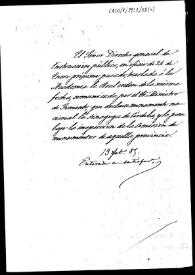 CAICO/9/7957/18(4)
El Señor Director general de
Instrucción pública, en oficio de 24 de
Enero próximo pasado, traslada á la
Academia la Real orden de la misma
fecha, comunicada por el Sr. Ministro
de Fomento, que declara monumento na-
cional la Sinagoga de Córdoba, y la pone
bajo la inspección de la Comisión de
monumentos de aquella provincia
13 feb. 85.
Enterada